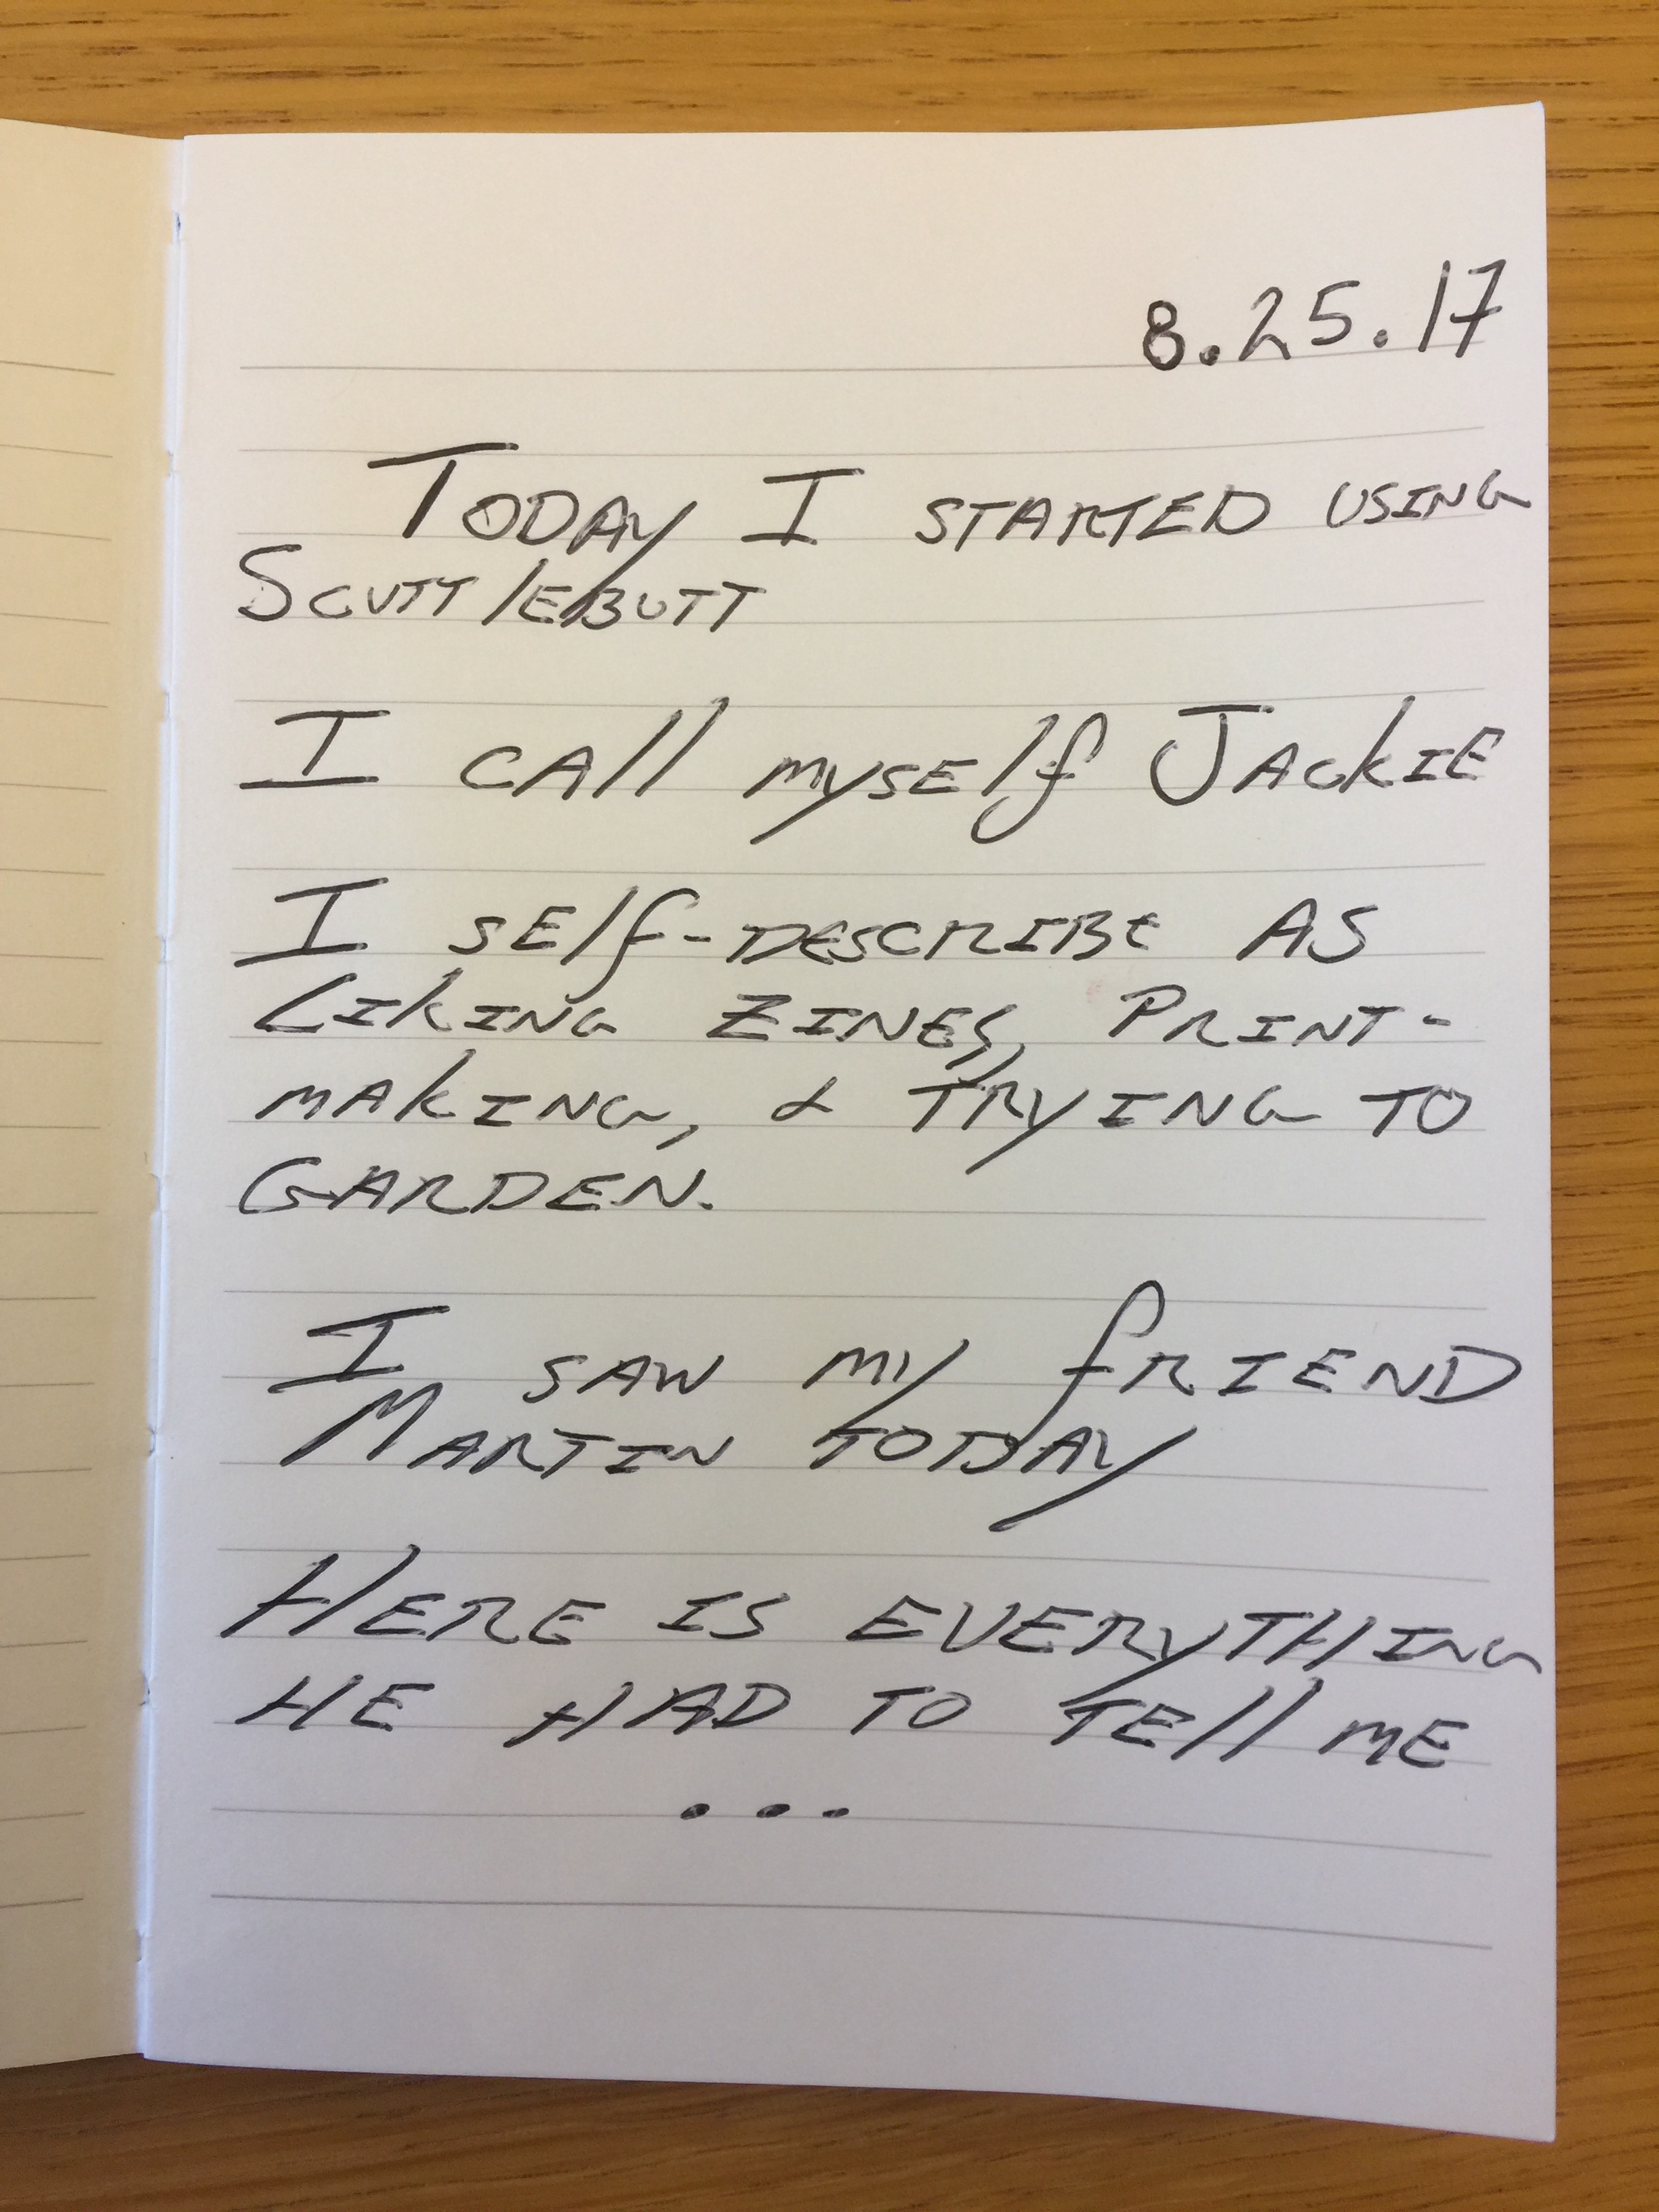 8.25.17
Today I started using
Scuttlebutt
I call myself Jackie
I self-describe as
liking zines, print-
making, & trying to
garden.
I saw my friend
Martin today
Here is everything
he had to tell me
...